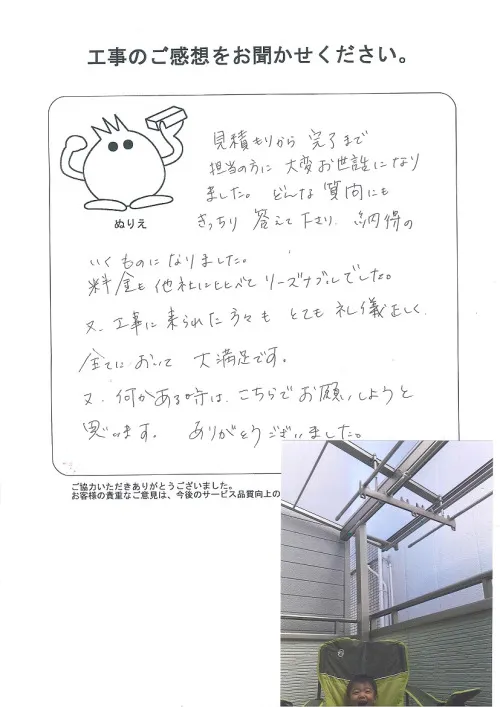 工事のご感想をお聞かせください。
ぬりえ
見積もりから 完了まで
担当の方に 大変お世話になり
ました。 どんな 質問にも
きっちり 答えて下さり、納得の
いくものになりました。
料金も他社にくらべて リーズナブルでした。
又、工事に来られた方々も とても 礼儀正しく、
全てにおいて 大満足です。
又、何かある時は、こちらで お願いしようと
思います。 ありがとうございました。
ご協力いただきありがとうございました。
お客様の貴重なご意見は、今後のサービス品質向上の